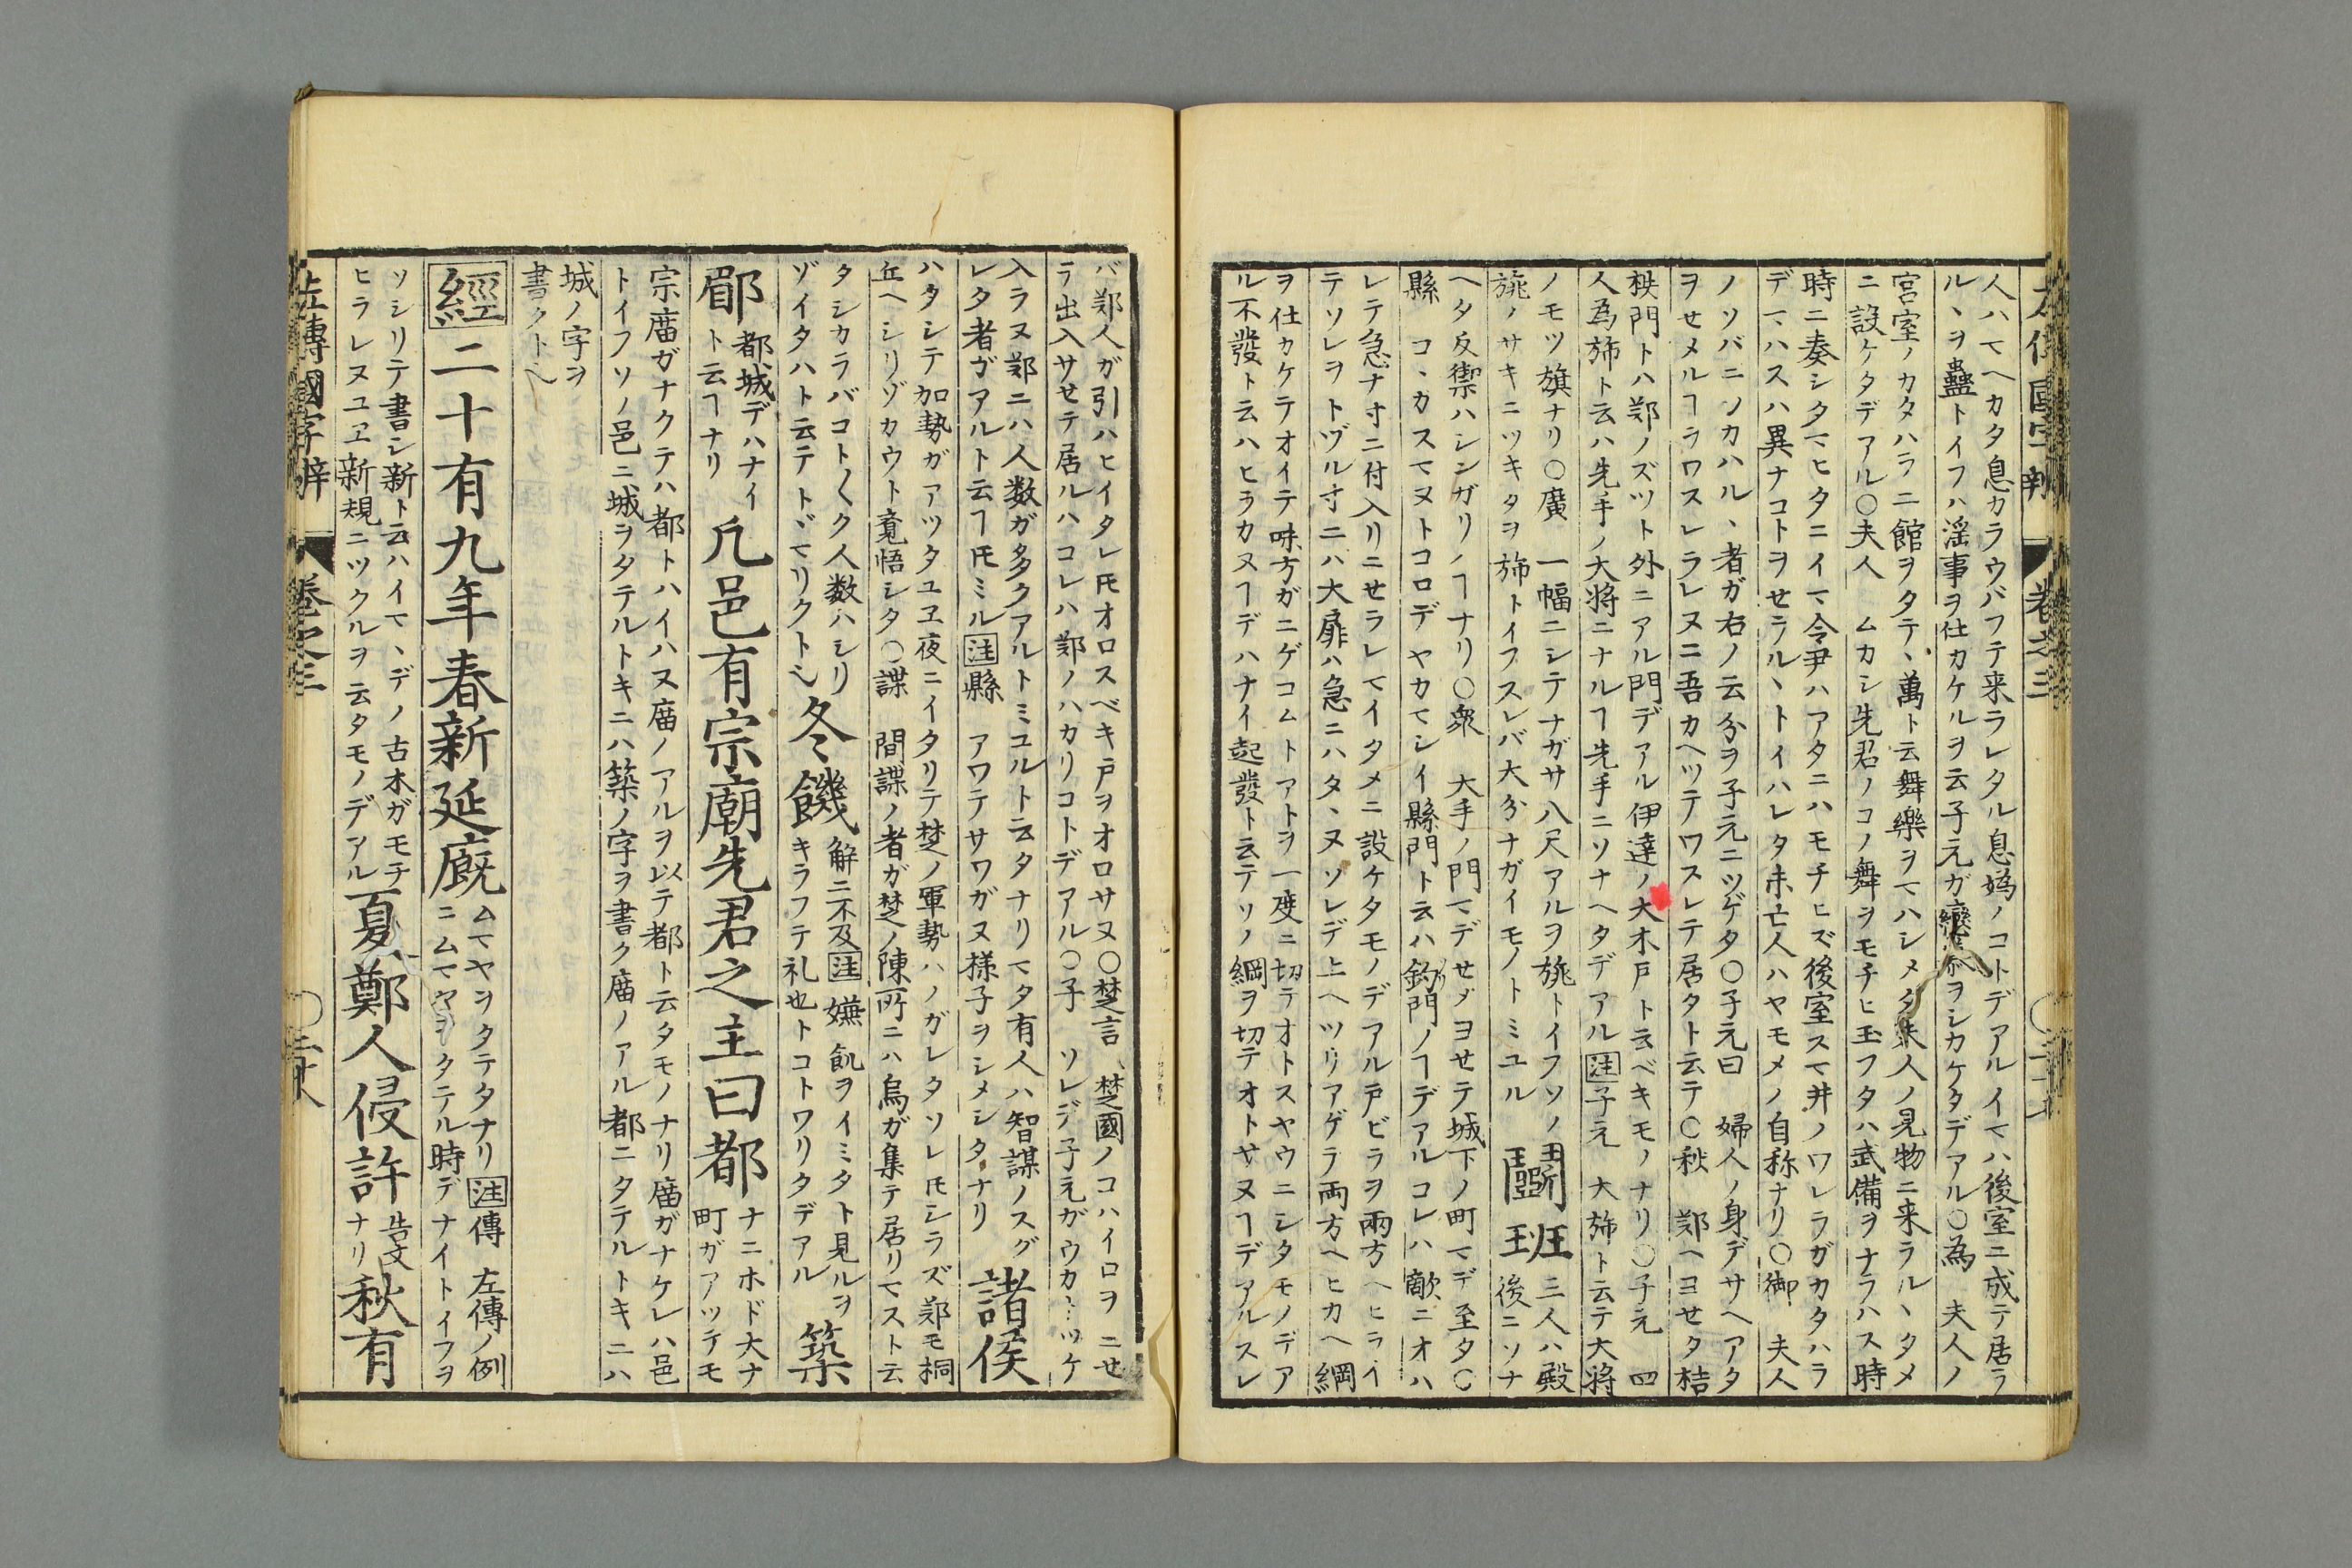 人ハマヘカタ息カラウバフテ来ラレタル息嬀ノコトデアルイマハ後室ニ成テ居ラ
ルヽヲ蠱トイフハ淫事ヲ仕カケルヲ云子元ガ
ヲシカケタデアル○為 夫人ノ
宮室ノカタハラニ館ヲタテヽ萬ト云舞樂ヲマハシメタ夫人ノ見物ニ来ラルヽタメ
ニ設ケタデアル○夫人 ムカシ先君ノコノ舞ヲモチヒ玉フタハ武備ヲナラハス時
時ニ奏シタマヒタニイマ令尹ハアタニハモチヒズ後室スマ井ノワレラガカタハラ
デマハスハ異ナコトヲセラルヽトイハレタ未亡人ハヤモメノ自称ナリ○御 夫人
ノソバニツカハルヽ者ガ右ノ云分ヲ子元ニツゲタ○子元曰 婦人ノ身デサヘアタ
ヲセメルヿヲワスレラレヌニ吾カヘツテワスレテ居タト云テ○秋 郑ヘヨせタ桔
柣門トハ郑ノズツト外ニアル門デアル伊達ノ大木戸ト云ベキモノナリ○子元 四
人為斾ト云ハ先手ノ大将ニナルヿ先手ニソナヘタデアル注子元 大斾ト云テ大将
ノモツ旗ナリ○廣 一幅ニシテナガサ八尺アルヲ旐トイフソノ
旐ノサキニツキタヲ斾トイフスレバ大分ナガイモノトミユル
鬭班
王孫
三人ハ殿
後ニソナ
ヘタ反禦ハシンガリノヿナリ○衆 大手ノ門マデせメヨせテ城下ノ町マデ至タ○
縣 コヽカスマヌトコロデヤカマシイ縣門ト云ハ釣門ノヿデアルコレハ敵ニオハ
レテ急ナ寸ニ付入リニせラレマイタメニ設ケタモノデアル戸ビラヲ兩方ヘヒライ
テソレヲトヅル寸ニハ大扉ハ急ニハタヽヌソレデ上ヘツリアゲテ両方ヘヒカヘ綱
ヲ仕カケテオイテ味方ガニゲコムトアトヲ一度ニ切テオトスヤウニシタモノデア
ル不發ト云ハヒラカヌヿデハナイ起發ト云テソノ綱ヲ切テオトサヌヿデアルスレ
バ郑人ガ引ハヒイタレ𪜈オロスベキ戸ヲオロサヌ○楚言 楚國ノコハイロヲニせ
ラ出入サせテ居ルハコレハ郑ノハカリコトデアル○子 ソレデ子元ガウカ〳〵ツケ
入ラヌ郑ニハ人数ガ多クアルトミユルト云タナリマタ有人ハ智謀ノスグ
レタ者ガアルト云ヿ𪜈ミル注縣 アワテサワガヌ様子ヲシメシタナリ
諸侯
ハタシテ加勢ガアツタユヱ夜ニイタリテ楚ノ軍勢ハノガレタソレ𪜈シラズ郑モ桐
丘ヘシリゾカウト覚悟シタ○諜 間諜ノ者ガ楚ノ陳所ニハ烏ガ集テ居リマスト云
タシカラバコト〴〵ク人数ハシリ
ゾイタハト云テトヾマリタトシ
冬饑
解ニ不及注嫌 飢ヲイミタト見ルヲ
キラフテ礼也トコトワリタデアル
築
郿
都城デハナイ
ト云ヿナリ
凡邑有宗廟先君之主曰都
ナニホド大ナ
町ガアツテモ
宗庿ガナクテハ都トハイハヌ庿ノアルヲ以テ都ト云タモノナリ庿ガナケレハ邑
トイフソノ邑ニ城ヲタテルトキニハ築ノ字ヲ書ク庿ノアル都ニタテルトキニハ
城ノ字ヲ
書クト也
經二十有九年春新延廐
ムマヤヲタテタナリ注傳 左傳ノ例
ニムマヤヲタテル時デナイトイフヲ
ソシリテ書シ新ト云ハイマヽデノ古木ガモチ
ヒラレヌユヱ新規ニツクルヲ云タモノデアル
夏鄭人侵許
告文
ナリ
秋有
左傳國字辨 卷之三